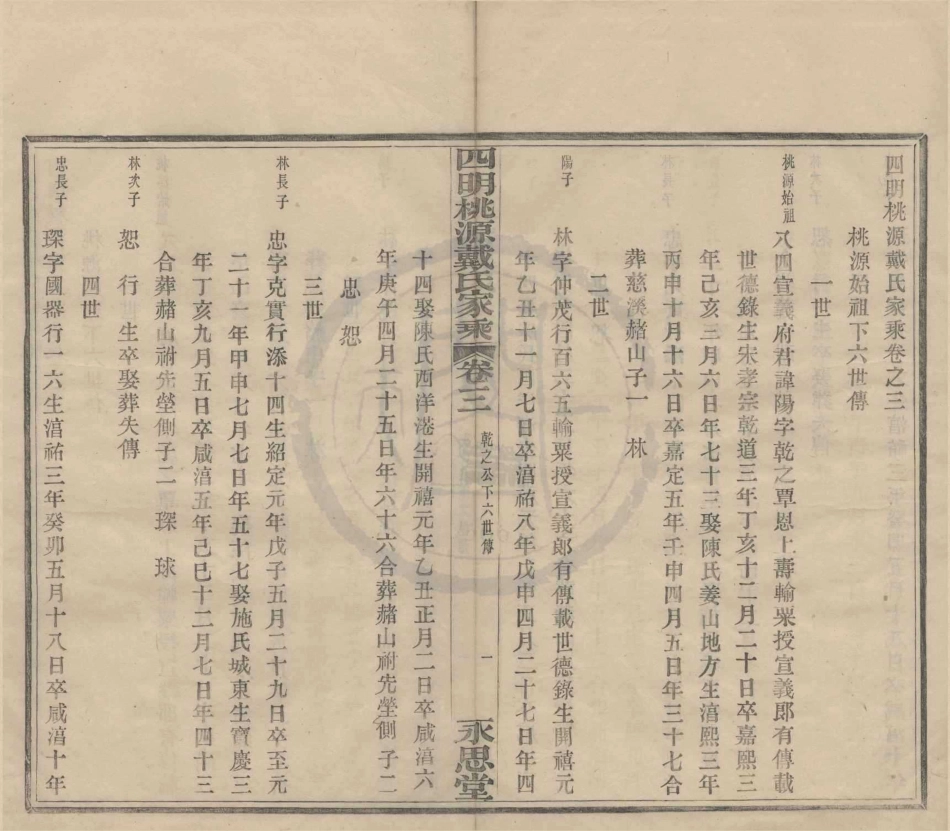 四明桃源戴氏家乘卷之三
桃源始祖下六世傳
一世
桃源始祖 八四宣義府君諱陽字乾之覃恩上壽輸粟授宣義郎有傳載
世德錄生宋孝宗乾道三年丁亥十二月二十日卒嘉熙三
年己亥三月六日年七十三娶陳氏姜山地方生湻熙三年
丙申十月十六日卒嘉定五年壬申四月五日年三十七合
葬慈溪赭山子一 林
二世
陽子 林字仲茂行百六五輸粟授宣義郎有傳載世德錄生開禧元
年乙丑十一月七日卒湻祐八年戊申四月二十七日年四
四明桃源戴氏家乘 卷三 乾之公下六世傳 一 永思堂
十四娶陳氏西洋港生開禧元年乙丑正月二日卒咸湻六
年庚午四月二十五日年六十六合葬赭山祔先塋側子二
忠 恕
三世
林長子 忠字克實行添十四生紹定元年戊子五月二十九日卒至元
二十一年甲申七月七日年五十七娶施氏城東生寶慶三
年丁亥九月五日卒咸湻五年己巳十二月七日年四十三
合葬赭山祔先塋側子二 琛 球
林次子 恕 行 生卒娶葬失傳
四世
忠長子 琛字國器行一六生湻祐三年癸卯五月十八日卒咸湻十年